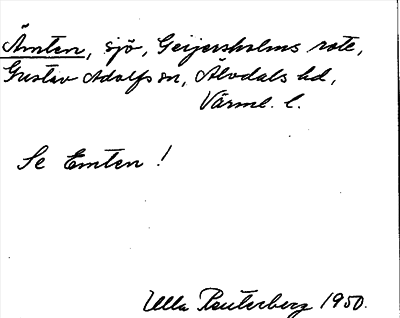 Ämten, sjö, Geijersholms rote,
Gustav Adolfs sn, Älvdals hd,
Värml. l.
Se Emten !
Ulla Reuterberg 1950.